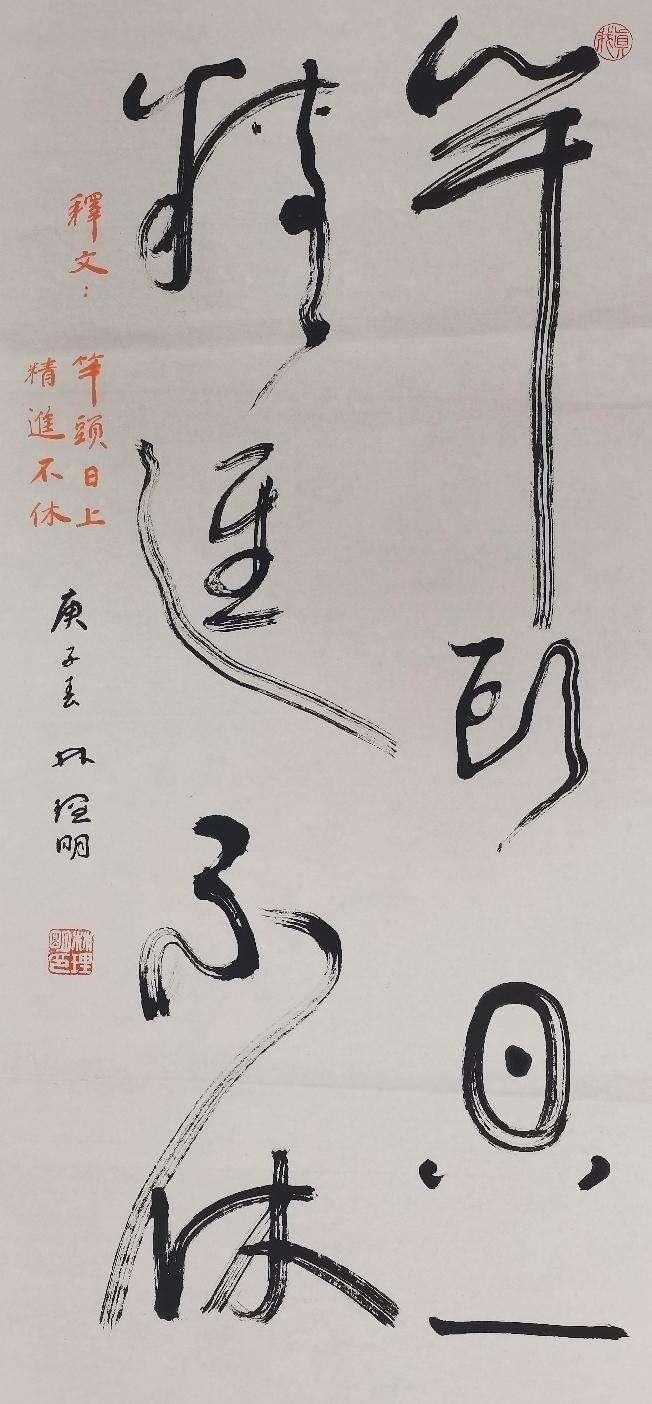 竿頭日上
精進不休
釋文：
竿頭日上
精進不休
庚子春 林理明